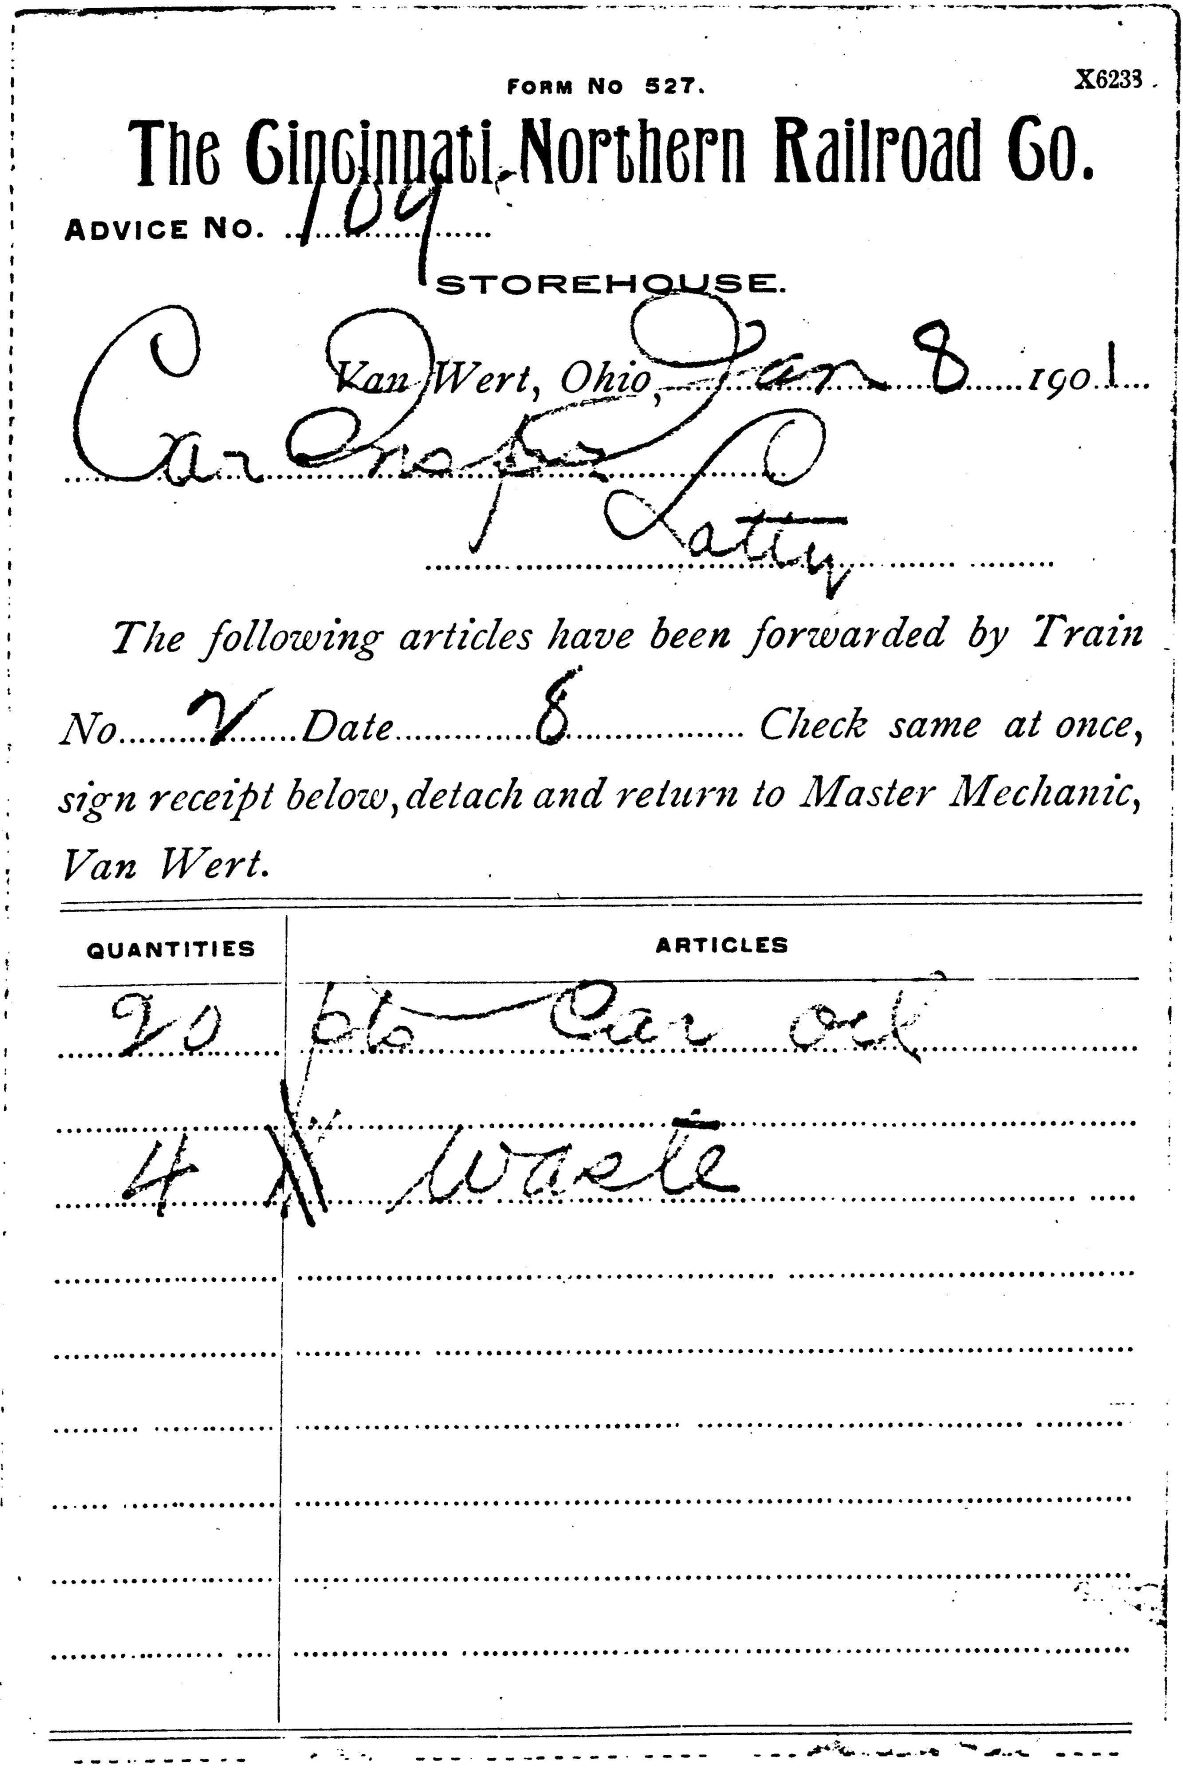 FORM NO 527.
X6233.
The Cincinnati Northern Railroad Co.
ADVICE NO. 109
STOREHOUSE.
Van Wert, Ohio, Jan 8 1901
Car Inspr
Latty
The following articles have been forwarded by Train
No. 2 Date 8 Check same at once,
sign receipt below, detach and return to Master Mechanic,
Van Wert.
QUANTITIES ARTICLES
20 pts Car oil
4 # Waste